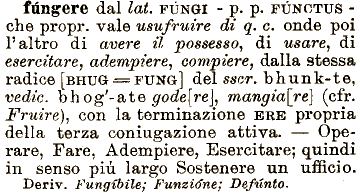 fúngere dal lat. FÚNGI - p. p. FÚNCTUS -
che propr. vale usufruire di q. c. onde poi
l'altro di avere il possesso, di usare, di
esercitare, adempiere, compiere, dalla stessa
radice [BHUG = FUNG] del sscr. bhunk-te,
vedic. bhog'-ate gode[re], mangia[re] (cfr.
Fruire), con la terminazione ERE propria
della terza coniugazione attiva. — Ope-
rare, Fare, Adempiere, Esercitare; quindi
in senso piú largo Sostenere un ufficio.
Deriv. Fungíbile; Funzióne; Defúnto.